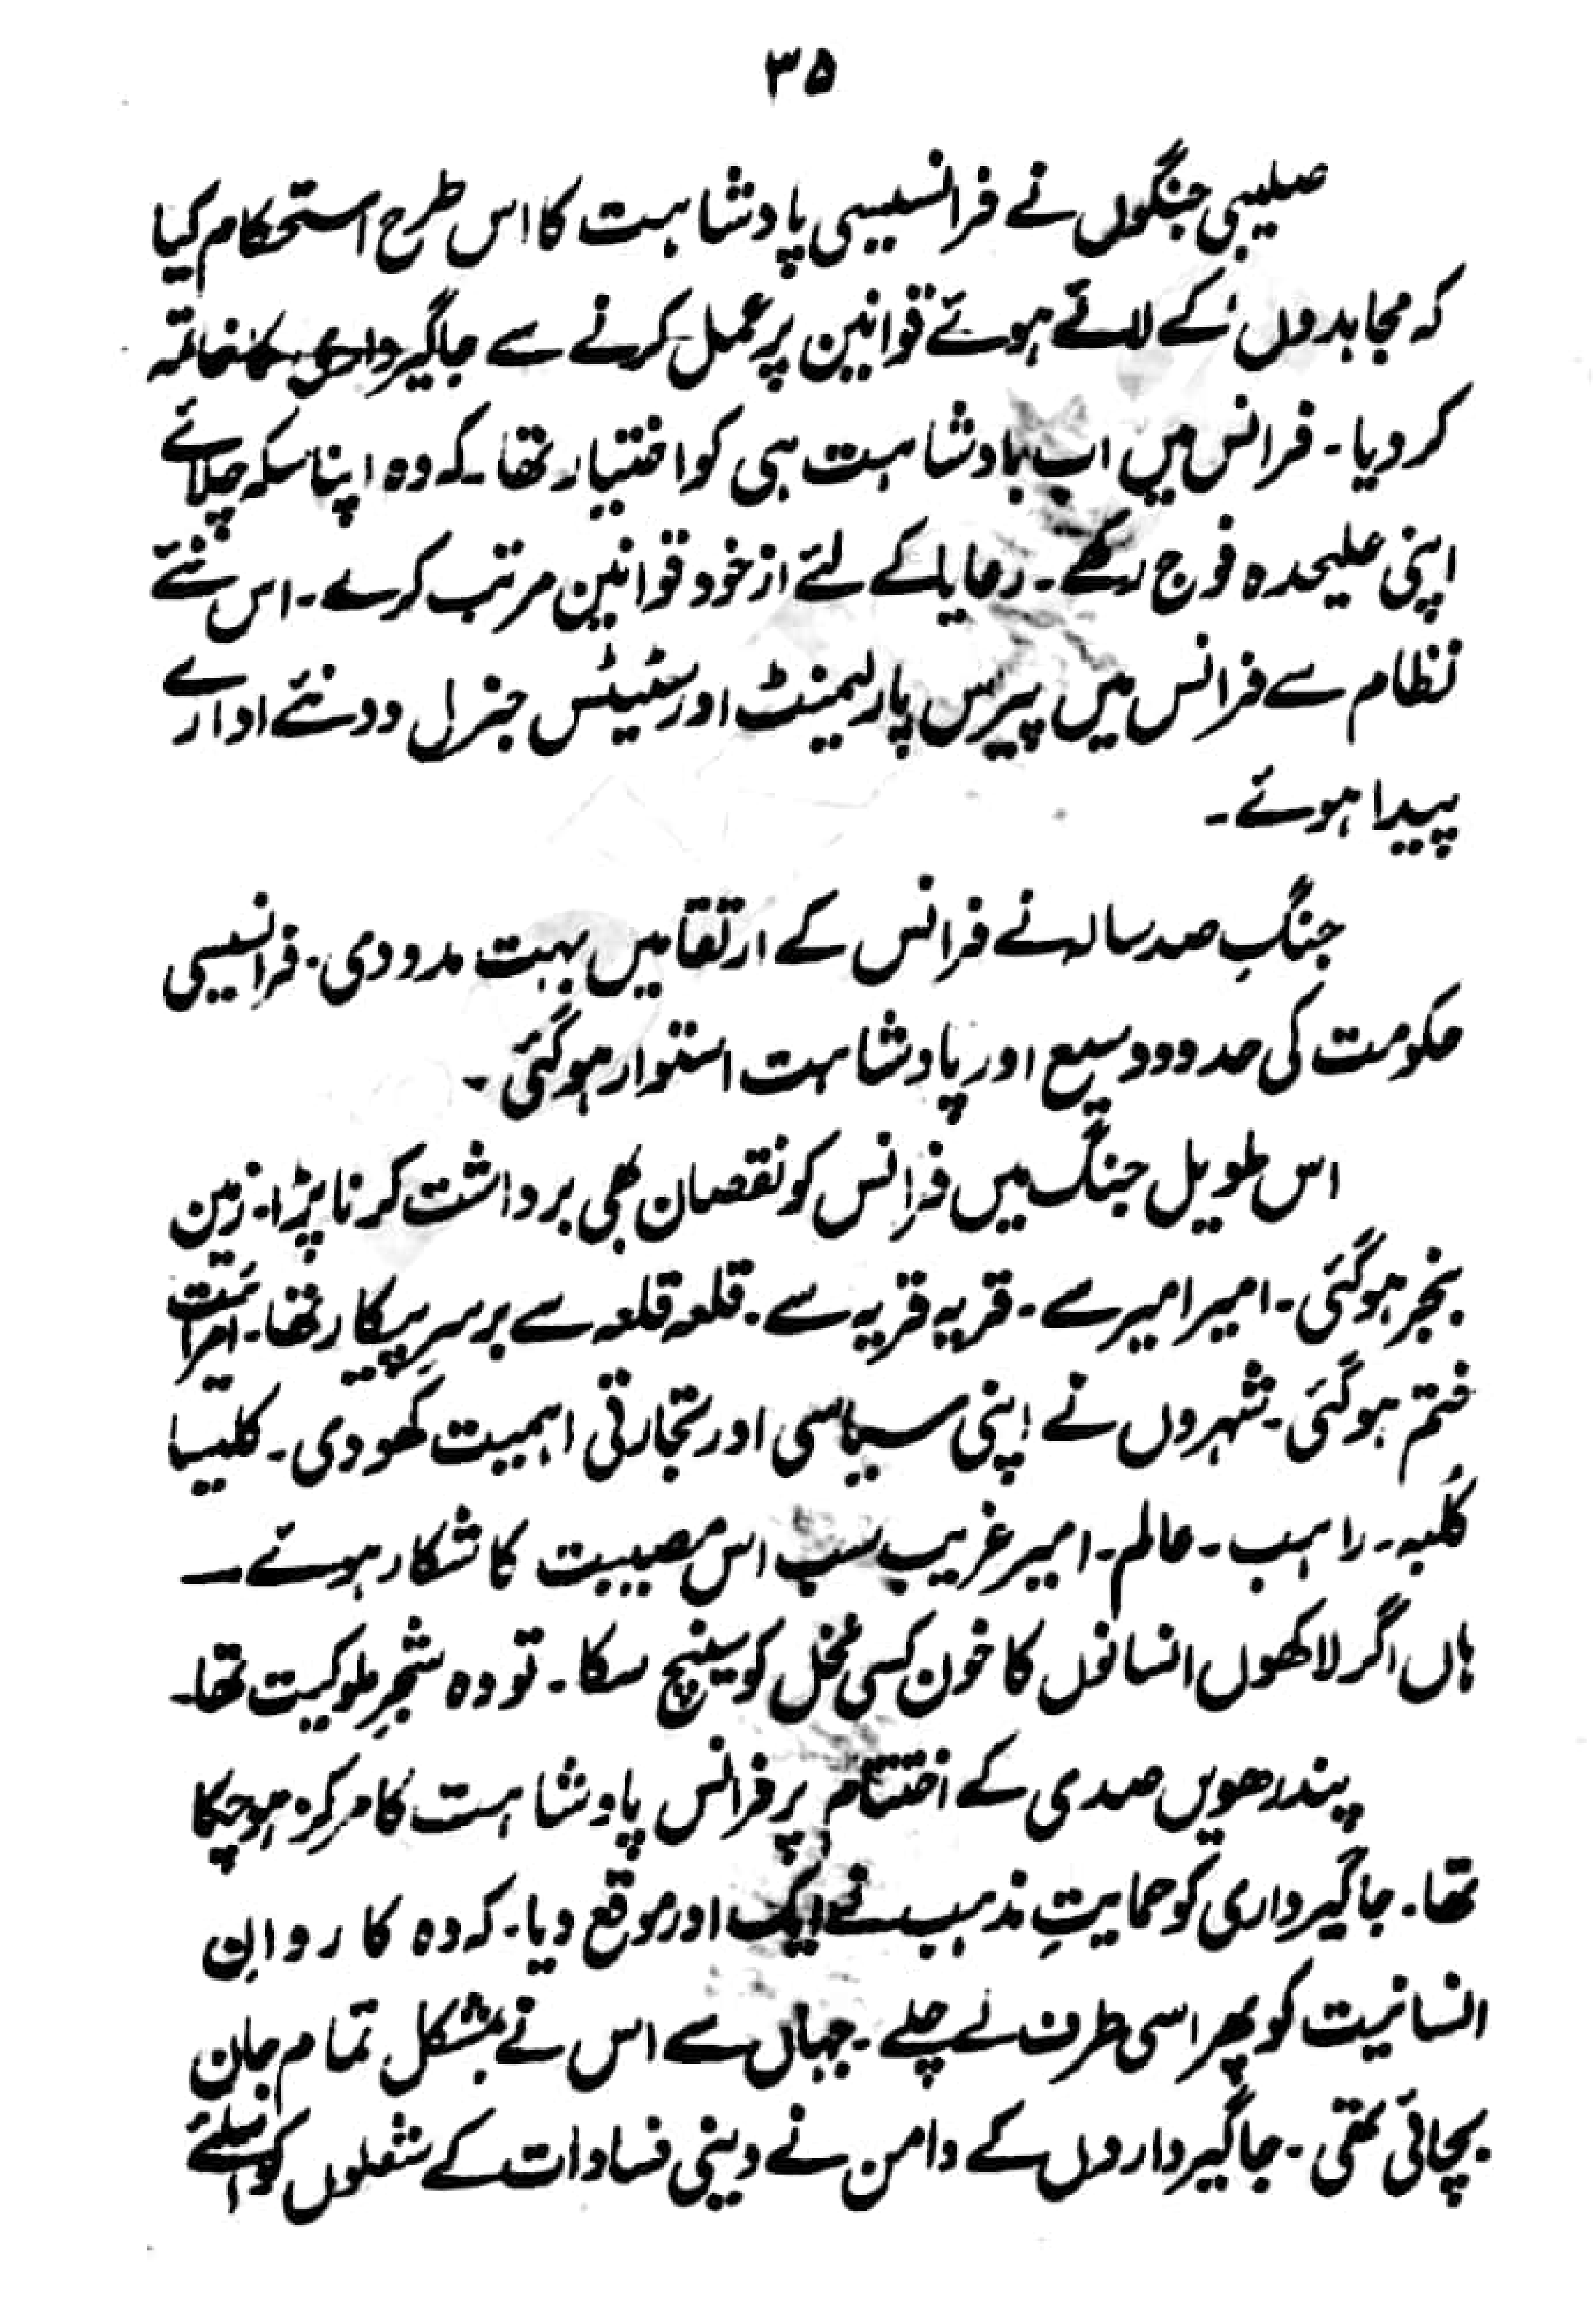 ۳۵
صلیبی جنگوں نے فرانسیسی پادشاہت کا اس طرح استحکام کیا
کہ مجاہدوں کے لائے ہوئے قوانین پر عمل کرنے سے جاگیرداری کا خاتمہ
کر دیا۔ فرانس میں اب بادشاہت ہی کو اختیار تھا۔ کہ وہ اپنا سکہ چلائے
اپنی علیحدہ فوج رکھے۔ رعایا کے لئے از خود قوانین مرتب کرے۔ اس نئے
نظام سے فرانس میں پیرس پارلیمنٹ اور سٹیٹس جنرل دو نئے ادارے
پیدا ہوئے۔
جنگِ صد سالہ نے فرانس کے ارتقا میں بہت مدد دی۔ فرانسیسی
حکومت کی حدود وسیع اور پادشاہت استوار ہو گئی۔
اس طویل جنگ میں فرانس کو نقصان بھی برداشت کرنا پڑا۔ زمین
بنجر ہو گئی۔ امیر امیر سے۔ قریہ قریہ سے۔ قلعہ قلعہ سے برسرِ پیکار تھا۔
ختم ہو گئی۔ شہروں نے اپنی سیاسی اور تجارتی اہمیت کھو دی۔ کلیسا
کلبہ۔ راہب۔ عالم۔ امیر غریب سب اس مصیبت کا شکار ہوئے۔
ہاں اگر لاکھوں انسانوں کا خون کسی نخل کو سینچ سکا۔ تو وہ شجرِ ملوکیت تھا۔
پندرھویں صدی کے اختتام پر فرانس پادشاہت کا مرکز ہو چکا
تھا۔ جاگیرداری کو حمایتِ مذہب نے ایک اور موقع دیا۔ کہ وہ کاروانِ
انسانیت کو پھر اسی طرف لے چلے۔ جہاں سے اس نے بمشکل تمام جان
بچائی تھی۔ جاگیرداروں کے دامن نے دینی فسادات کے شعلوں کو